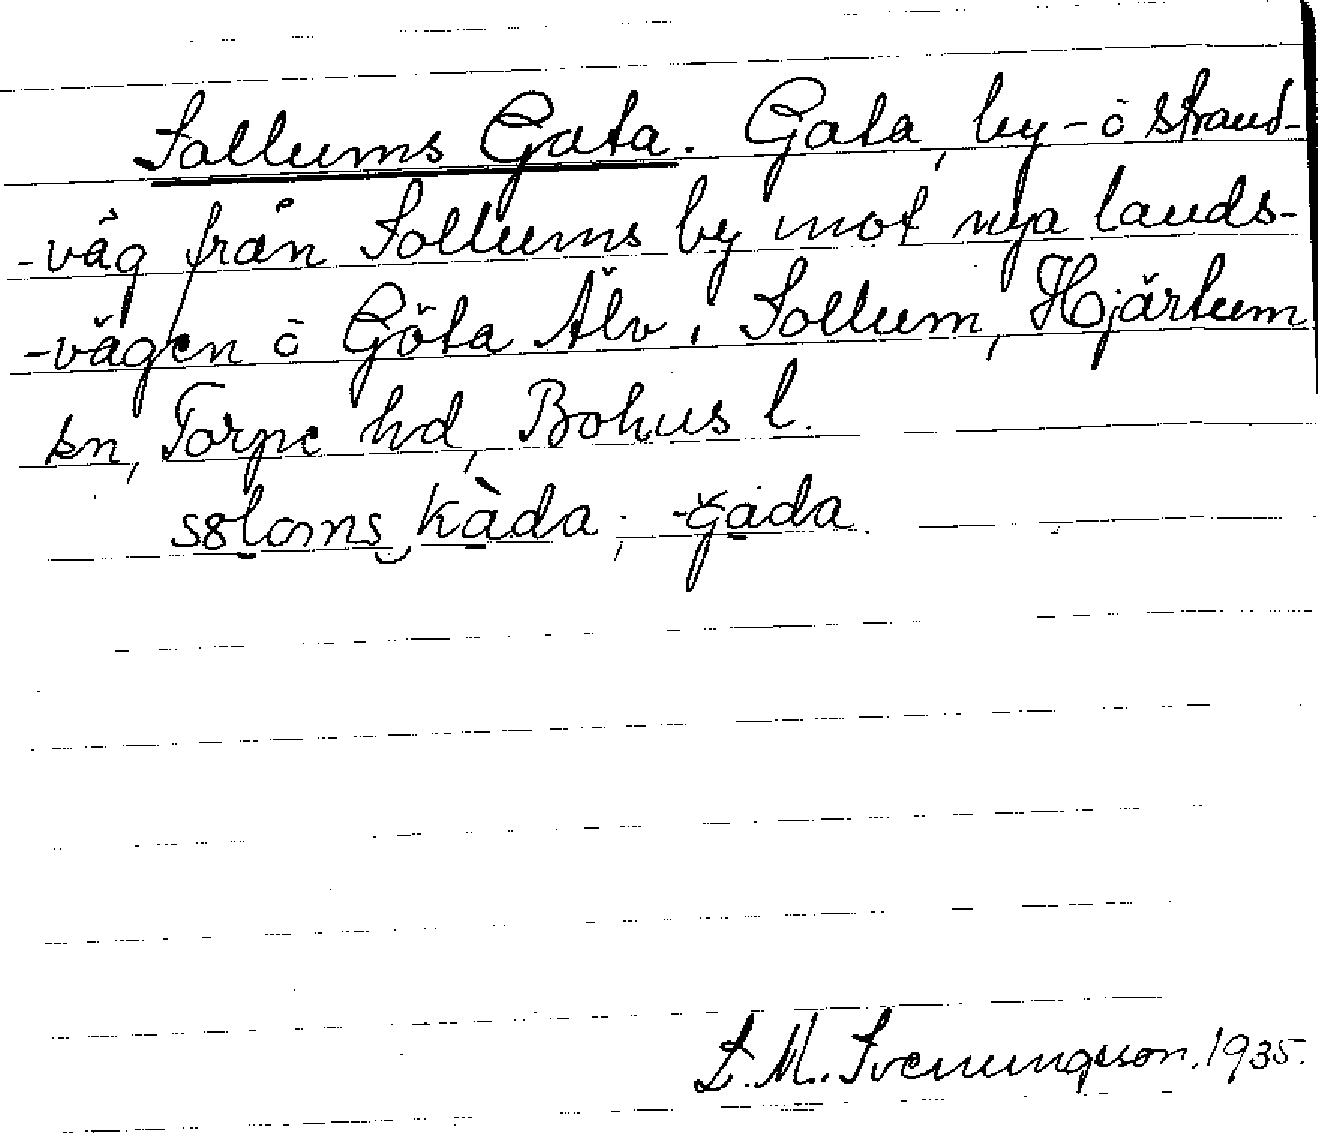 Sollums Gata. Gata, by- ō strand-
-väg från Sollums by mot nya lands-
-vägen ō Göta Älv, Sollum, Hjärtum
sn, Torpe hd, Bohus l.
kàda; -gada
S. M. Svenungsson. 1935.